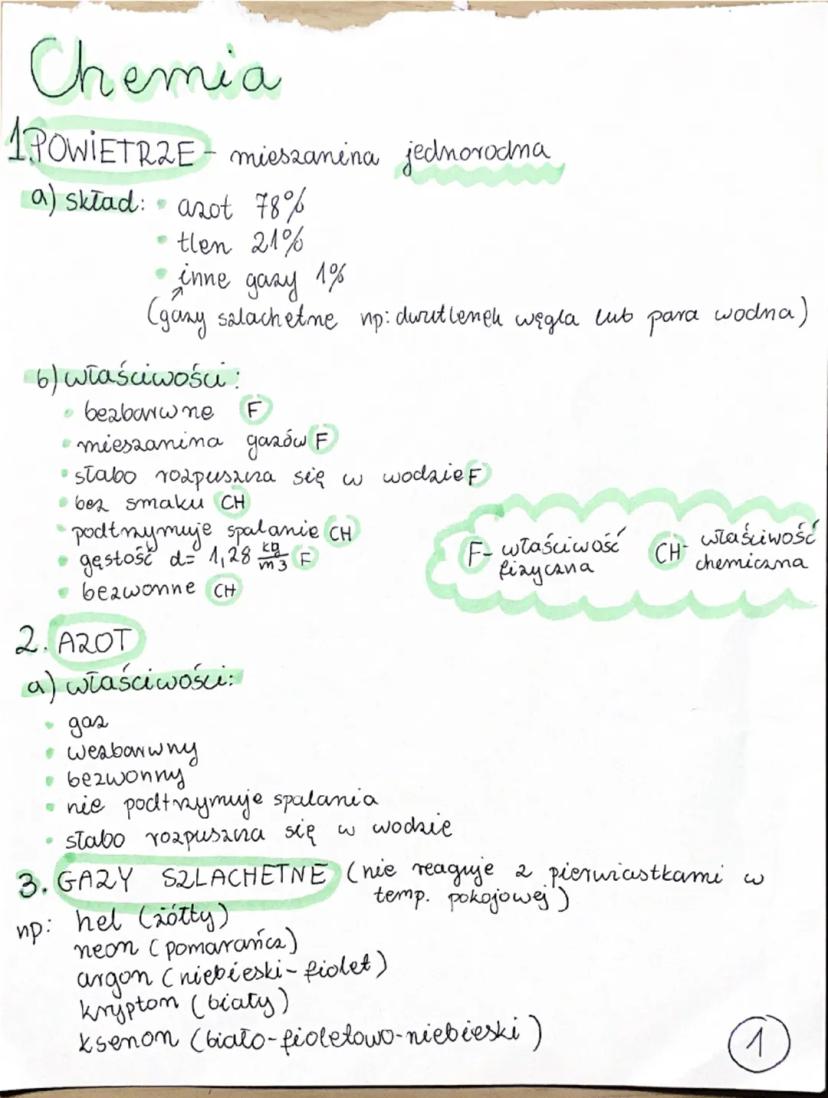 Chemia
1. POWIETRZE - mieszanina jednorodna
a) skład: • azot 78%
• tlen 21%
• inne gazy 1%
(gazy szlachetne np: dwutlenek węgla lub para wodna)
b) właściwości:
• bezbarwne F
• mieszanina gazów F
• słabo rozpuszcza się w wodzie F
• bez smaku CH
• podtrzymuje spalanie CH
• gęstość d= 1,28 kg/m3 F
• bezwonne CH
F- właściwość fizyczna
CH- właściwość chemiczna
2. AZOT
a) właściwości:
• gaz
• wezbarwny
• bezwonny
• nie podtrzymuje spalania
• słabo rozpuszcza się w wodzie
3. GAZY SZLACHETNE (nie reaguje z pierwiastkami w
temp. pokojowej)
np: hel (żółty)
neon (pomarańcz)
argon (niebieski-fiolet)
krypton (biały)
ksenon (biało-fioletowo-niebieski)
1